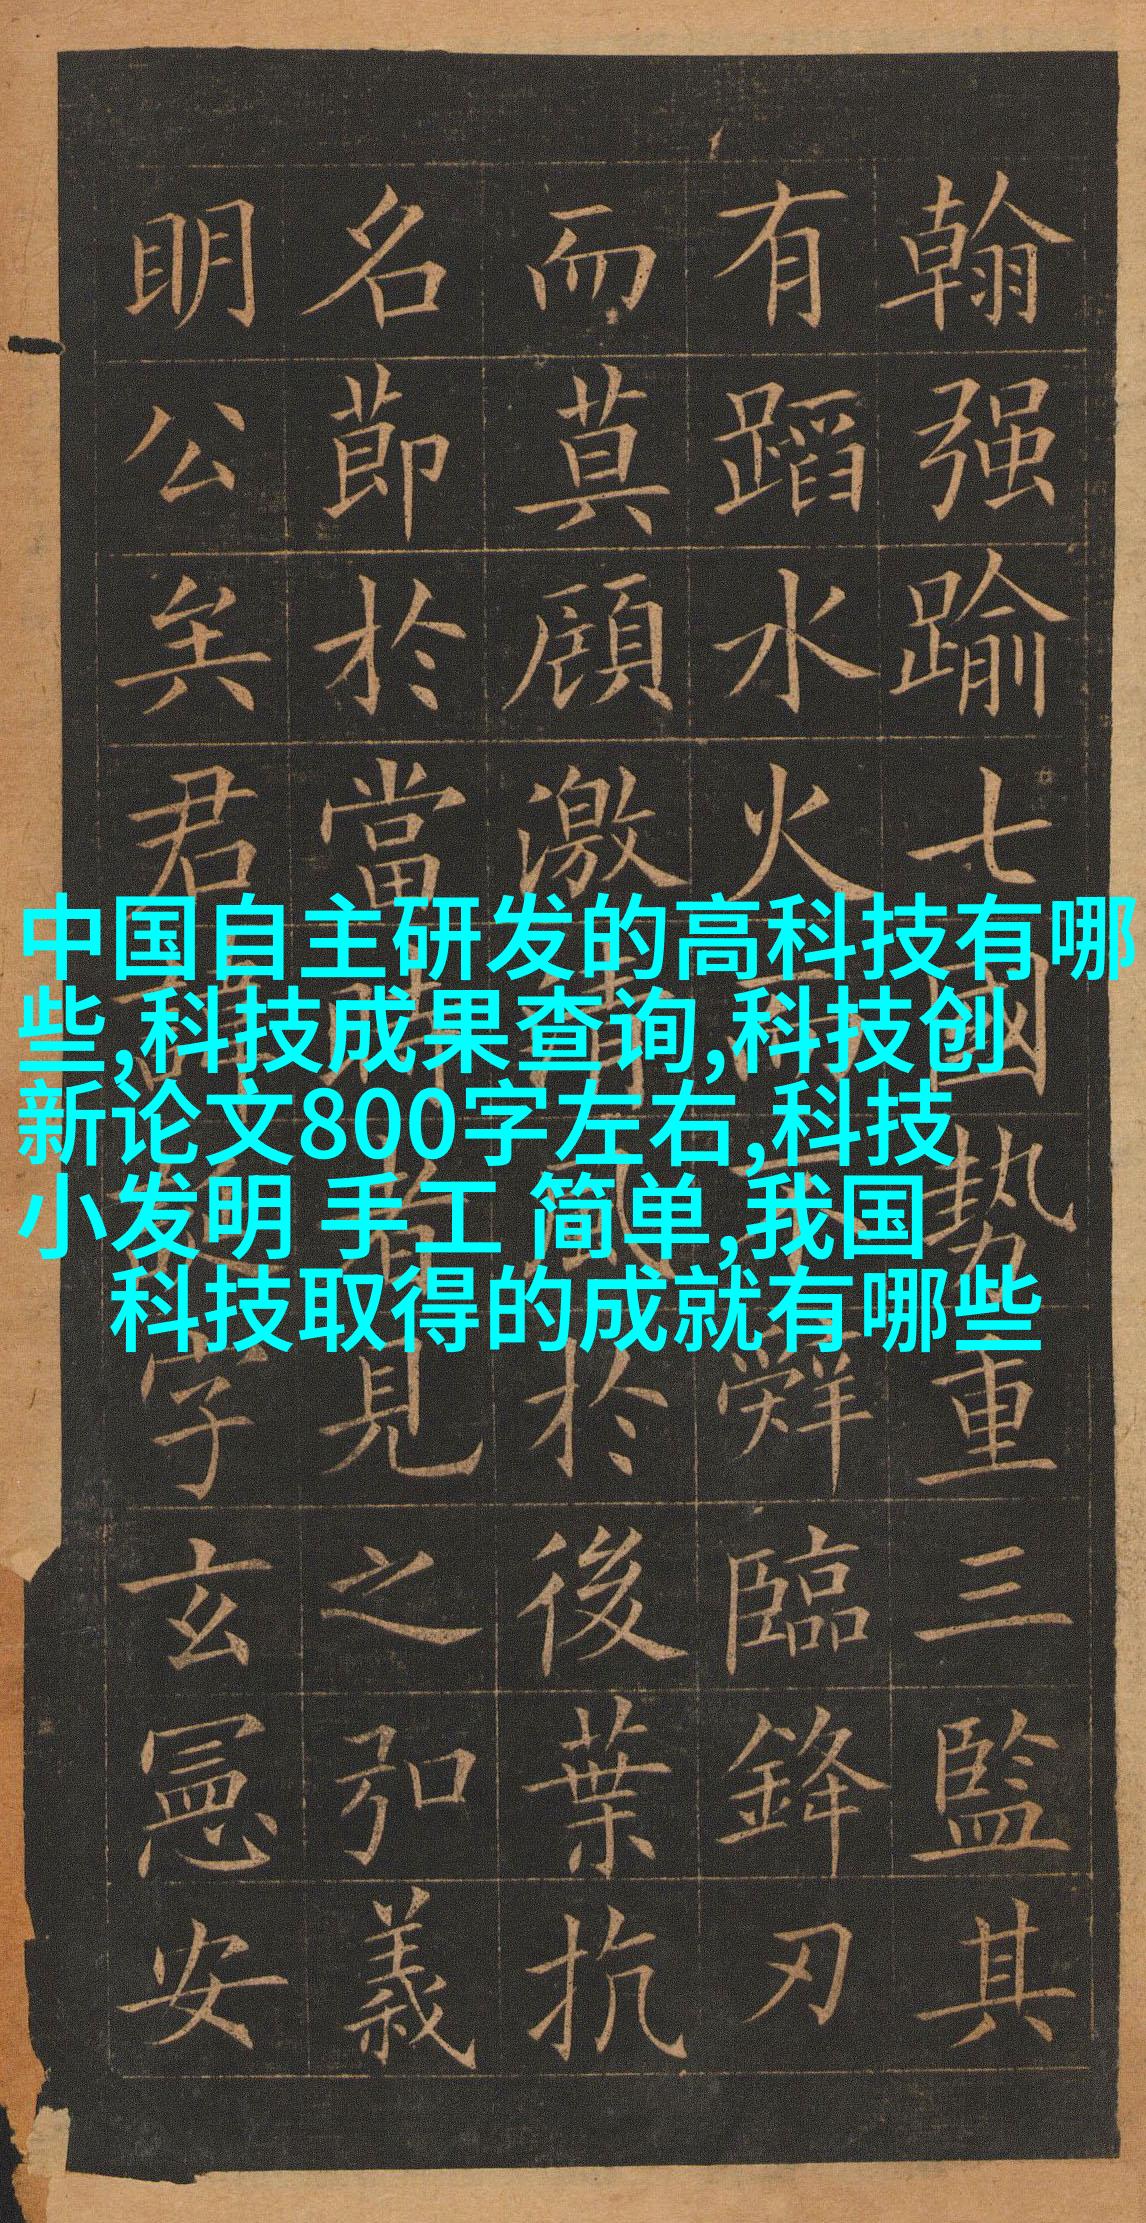 翰强踰七國勢重三監其
有蹈水火而辤臨鋒刃
而莫顧激清風於後葉抗
名莭於當時者見之弘義
明公矣君諱字玄憲安
中国自主研发的高科技有哪
些,科技成果查询,科技创
新论文800字左右,科技
小发明 手工 简单,我国
科技取得的成就有哪些